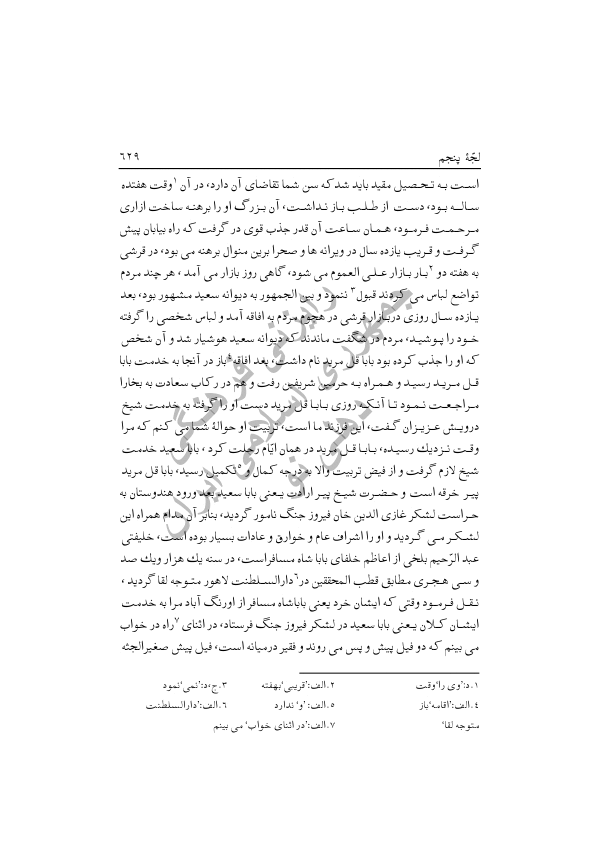 لجّۀ پنجم ٦٢٩
است به تحصیل مقید باید شد که سن شما تقاضای آن دارد، در آن ١وقت هفتده
ساله بود، دست از طلب باز نداشت، آن بزرگ او را برهنه ساخت ازاری
مرحمت فرمود، همان ساعت آن قدر جذب قوی در گرفت که راه بیابان پیش
گرفت و قریب یازده سال در ویرانه ها و صحرا برین منوال برهنه می بود، در قرشی
به هفته دو ٢بار بازار علی العموم می شود، گاهی روز بازار می آمد ، هر چند مردم
تواضع لباس می کردند قبول٣ ننمود و بین الجمهور به دیوانه سعید مشهور بود، بعد
یازده سال روزی دربازار قرشی در هجوم مردم به افاقه آمد و لباس شخصی را گرفته
خود را پوشید، مردم در شگفت ماندند که دیوانه سعید هوشیار شد و آن شخص
که او را جذب کرده بود بابا قل مرید نام داشت، بعد افاقه٤باز در آنجا به خدمت بابا
قل مرید رسید و همراه به حرمین شریفین رفت و هم در رکاب سعادت به بخارا
مراجعت نمود تا آنکه روزی بابا قل مرید دست او را گرفته به خدمت شیخ
درویش عزیزان گفت، این فرزند ما است، تربیت او حوالۀ شما می کنم که مرا
وقت نزدیك رسیده، بابا قل مرید در همان ایّام رحلت کرد ، بابا سعید خدمت
شیخ لازم گرفت و از فیض تربیت والا به درجه کمال و ٥تکمیل رسید، بابا قل مرید
پیر خرقه است و حضرت شیخ پیر ارادت یعنی بابا سعید بعد ورود هندوستان به
حراست لشکر غازی الدین خان فیروز جنگ نامور گردید، بنابر آن مدام همراه این
لشکر می گردید و او را اشراف عام و خوارق و عادات بسیار بوده است، خلیفتی
عبد الرّحیم بلخی از اعاظم خلفای بابا شاه مسافراست، در سنه یك هزار ویك صد
و سی هجری مطابق قطب المحققین در٦دارالسلطنت لاهور متوجه لقا گردید ،
نقل فرمود وقتی که ایشان خرد یعنی باباشاه مسافر از اورنگ آباد مرا به خدمت
ایشان کلان یعنی بابا سعید در لشکر فیروز جنگ فرستاد، در اثنای ٧راه در خواب
می بینم که دو فیل پیش و پس می روند و فقیر درمیانه است، فیل پیش صغیرالجثه
١.د:’وی را‘وقت ٢.الف:’قریبی‘بهفته ٣.ج،د:’نمی‘نمود
٤.الف:’اقامه‘باز ٥.الف:’و‘ ندارد ٦.الف:’دارالسلطنت
متوجه لقا‘ ٧.الف:’در اثنای خواب‘ می بینم